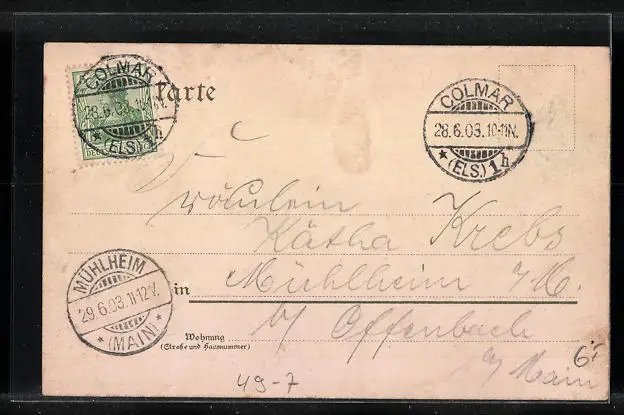 COLMAR
28.6.03.
(ELS.) 1h
Karte
COLMAR
28.6.03.10-11N.
* (ELS.) 1h
Fräulein
Kätha Krebs
Mühlheim a/M.
b/ Offenbach
a/ Main
MÜHLHEIM
29.6.03.11-12V.
* (MAIN) *
in
Wohnung
(Straße und Hausnummer)
49-7
6.-